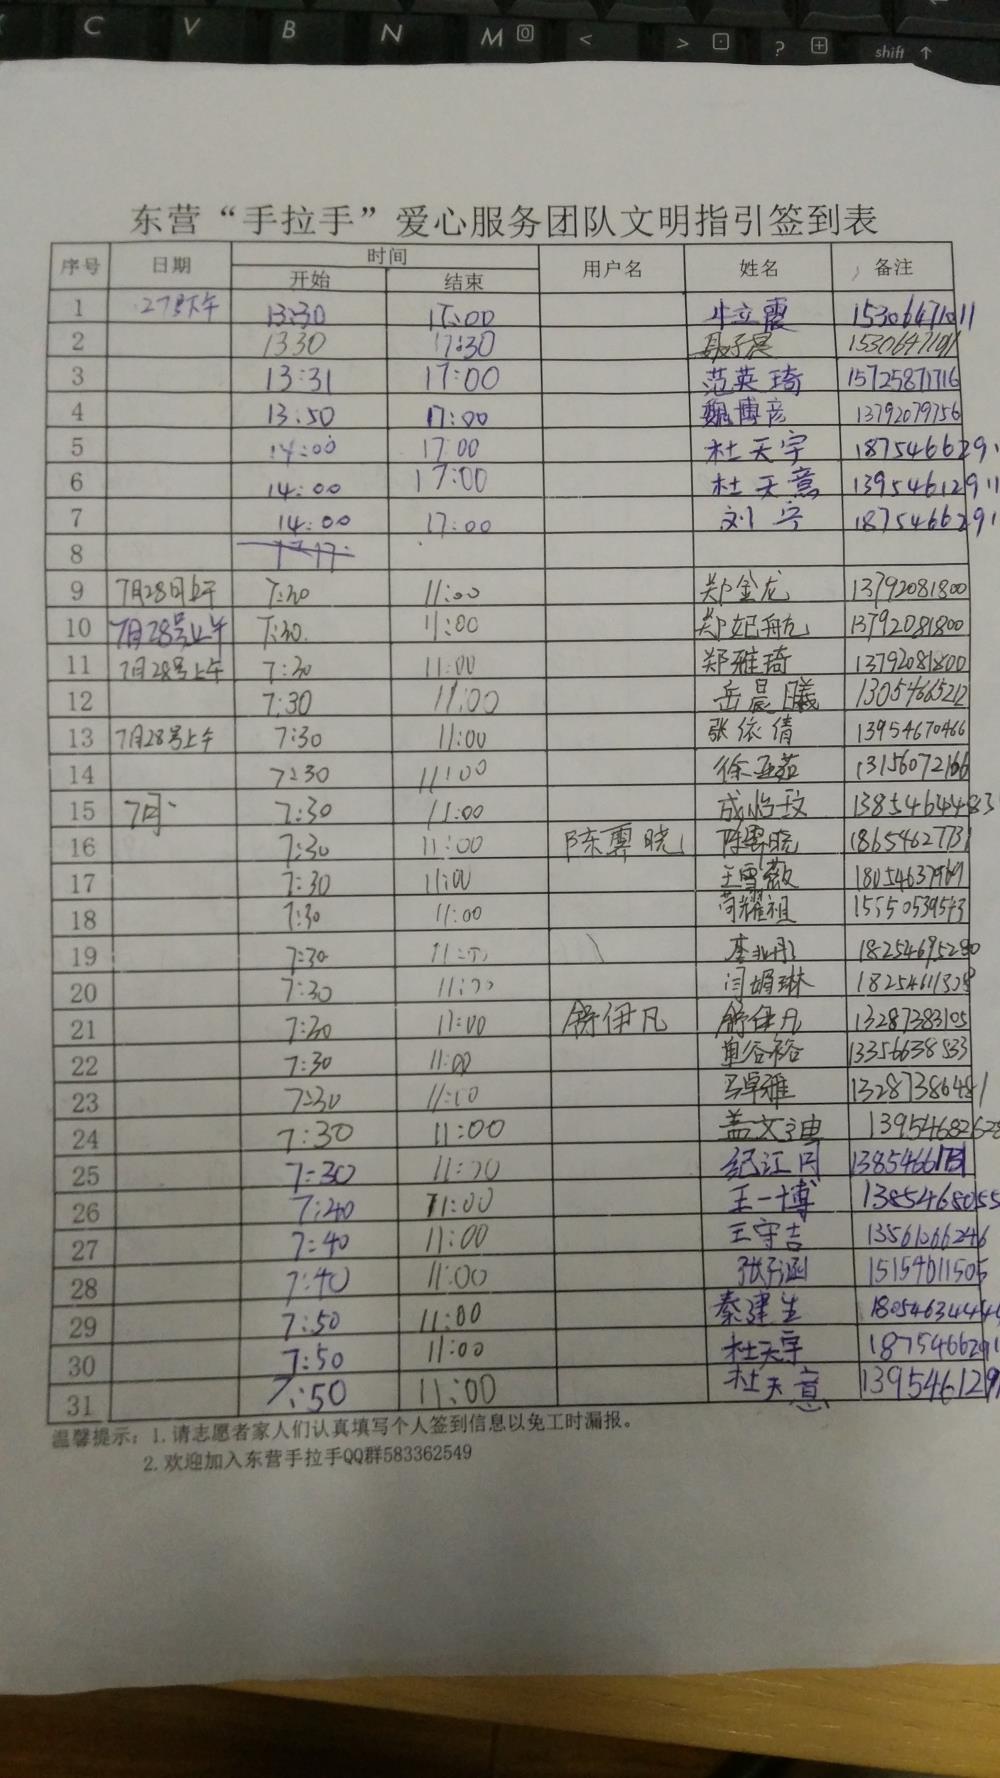 C V B N M < > ? shift ↑
东营“手拉手”爱心服务团队文明指引签到表
序号 日期 时间 用户名 姓名 备注
开始 结束
1 27号下午 13:30 17:00 牛立霞 15306471011
2 1330 17:30 15306471011
3 13:31 17:00 范英琦 15725871716
4 13:50 17:00 魏博彦 13792079756
5 14:00 17:00 杜天宇 1875466291
6 14:00 17:00 杜天意 13954612911
7 14:00 17:00 刘宁 1875466291
8
9 7月28日上午 7:30 11:00 郑金龙 13792081800
10 7月28号上午 7:30. 11:00 郑妃航 13792081800
11 7月28号上午 7:30 11:00 郑雅琦 13792081800
12 7:30 11:00 岳晨曦 13054665212
13 7月28号上午 7:30 11:00 张依倩 13954670466
14 7:30 11:00 徐亚茹 13156072166
15 7月 7:30 11:00 成怡玟 13854644483
16 7:30 11:00 陈霁晓 陈霁晓 18654627731
17 7:30 11:00 王雪薇 18054637969
18 7:30 11:00 苟耀祖 15550539543
19 7:30 11:00 18254695280
20 7:30 11:00 闫娟琳 18254611308
21 7:30 11:00 舒伊凡 舒伊凡 13287383105
22 7:30 11:00 单谷裕 13356638533
23 7:30 11:00 马卓雅 13287386481
24 7:30 11:00 盖文迪 13954682628
25 7:30 11:00 纪江丹 13854661731
26 7:40 11:00 王一博 1385468055
27 7:40 11:00 王守吉 13561066246
28 7:40 11:00 张妤涵 15154611505
29 7:50 11:00 秦建生 1805463444
30 7:50 11:00 杜天宇 1875466291
31 7:50 11:00 杜天意 139546129
温馨提示：1.请志愿者家人们认真填写个人签到信息以免工时漏报。
2.欢迎加入东营手拉手QQ群583362549